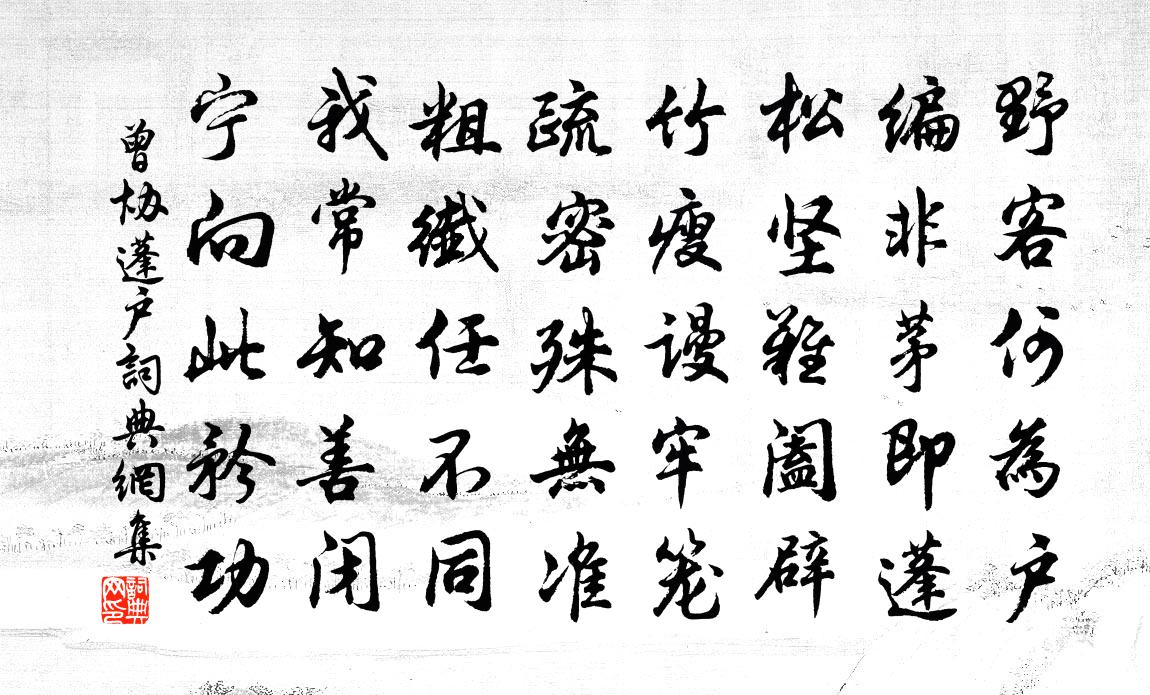 野客何為户
编非茅即蓬
松坚難阖辟
竹瘦謾牢笼
疏密殊無准
粗纖任不同
我常知善闭
宁向此矜功
曾协蓬户詞典網集
詞典网印